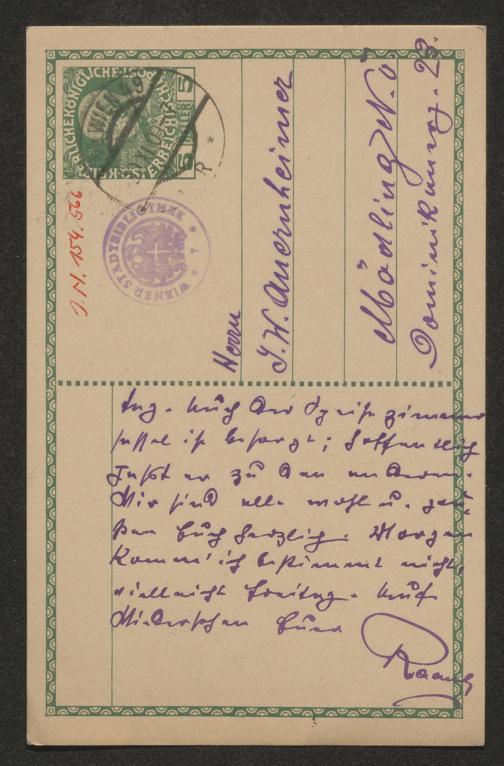 KAISERLICHEKÖNIGLICHE ÖSTERREICHISCHE POST
5 HELLER 5
WIEN
WIENER STADTBIBLIOTHEK
J. N. 154.566
Herrn
J. W. Auernheimer
Mödling N.Ö
Dominikanerg. 23.
Auch der Speisezimmer
sessel ist besorgt; hoffentlich
paßt er zu den anderen.
Wir sind alle wohl u. grü
ßen Euch herzlich. Morgen
komm' ich bestimmt nicht,
vielleicht Freitag. Auf
Wiedersehen Euer
Raoul